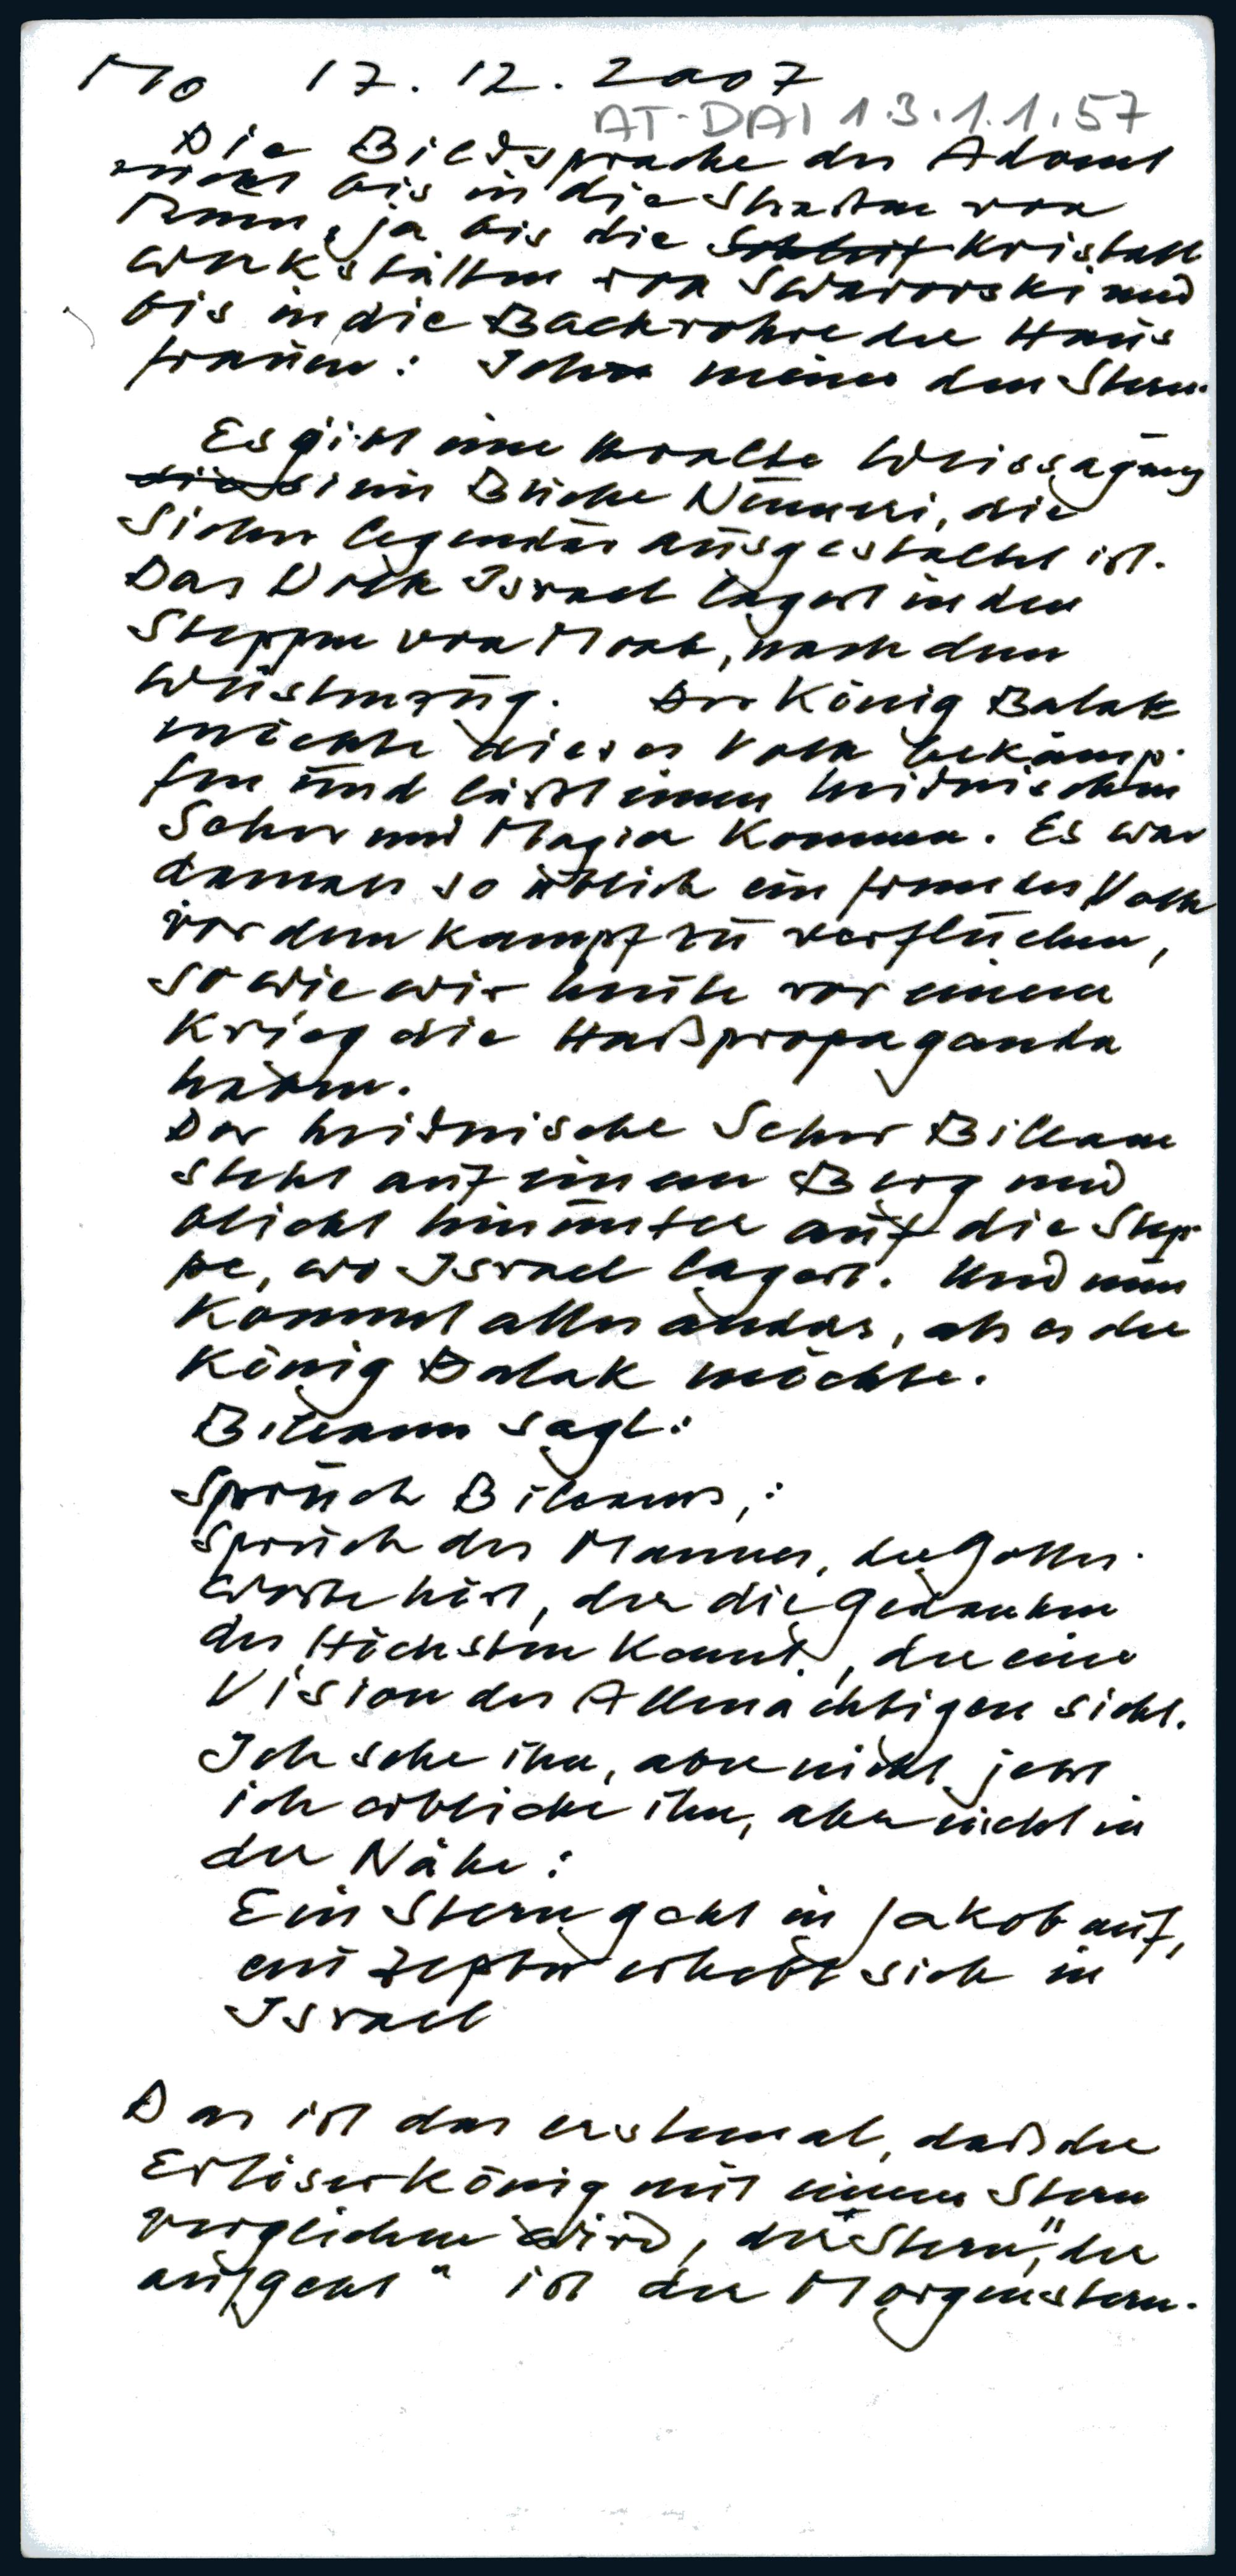 Mo 17.12.2007
AT-DAI 1.3.1.1.57
Die Bildsprache des Advent
reicht bis in die Straßen von
ja bis die Kristall
werkstätten von Swarovski und
bis in die Backrohre der Haus
frauen: Ich meine den Stern.
Es gibt eine uralte Weissagung
im Buche Numeri, die
sicher legendär ausgestaltet ist.
Das Volk Israel lagert in den
Steppen von Moab, nach dem
Wüstenzug. Der König Balak
möchte dieses Volk bekämp-
fen und läßt einen heidnischen
Seher und Magier kommen. Es war
damals so üblich ein fremdes Volk
vor dem Kampf zu verfluchen,
so wie wir heute vor einem
Krieg die Haßpropaganda
haben.
Der heidnische Seher Bileam
steht auf einem Berg und
blickt hinunter auf die Step-
pe, wo Israel lagert. Und nun
kommt alles anders, als es der
König Balak möchte.
Bileam sagt:
Spruch Bileams,:
Spruch des Mannes, der Gottes-
worte hört, der die Gedanken
des Höchsten kennt, der eine
Vision des Allmächtigen sieht.
Ich sehe ihn, aber nicht jetzt
ich erblicke ihn, aber nicht in
der Nähe:
Ein Stern geht in Jakob auf,
ein Zepter erhebt sich in
Israel
Das ist das erstemal, daß der
Erlöserkönig mit einem Stern
verglichen wird, der "Stern", der
aufgeht" ist der Morgenstern.